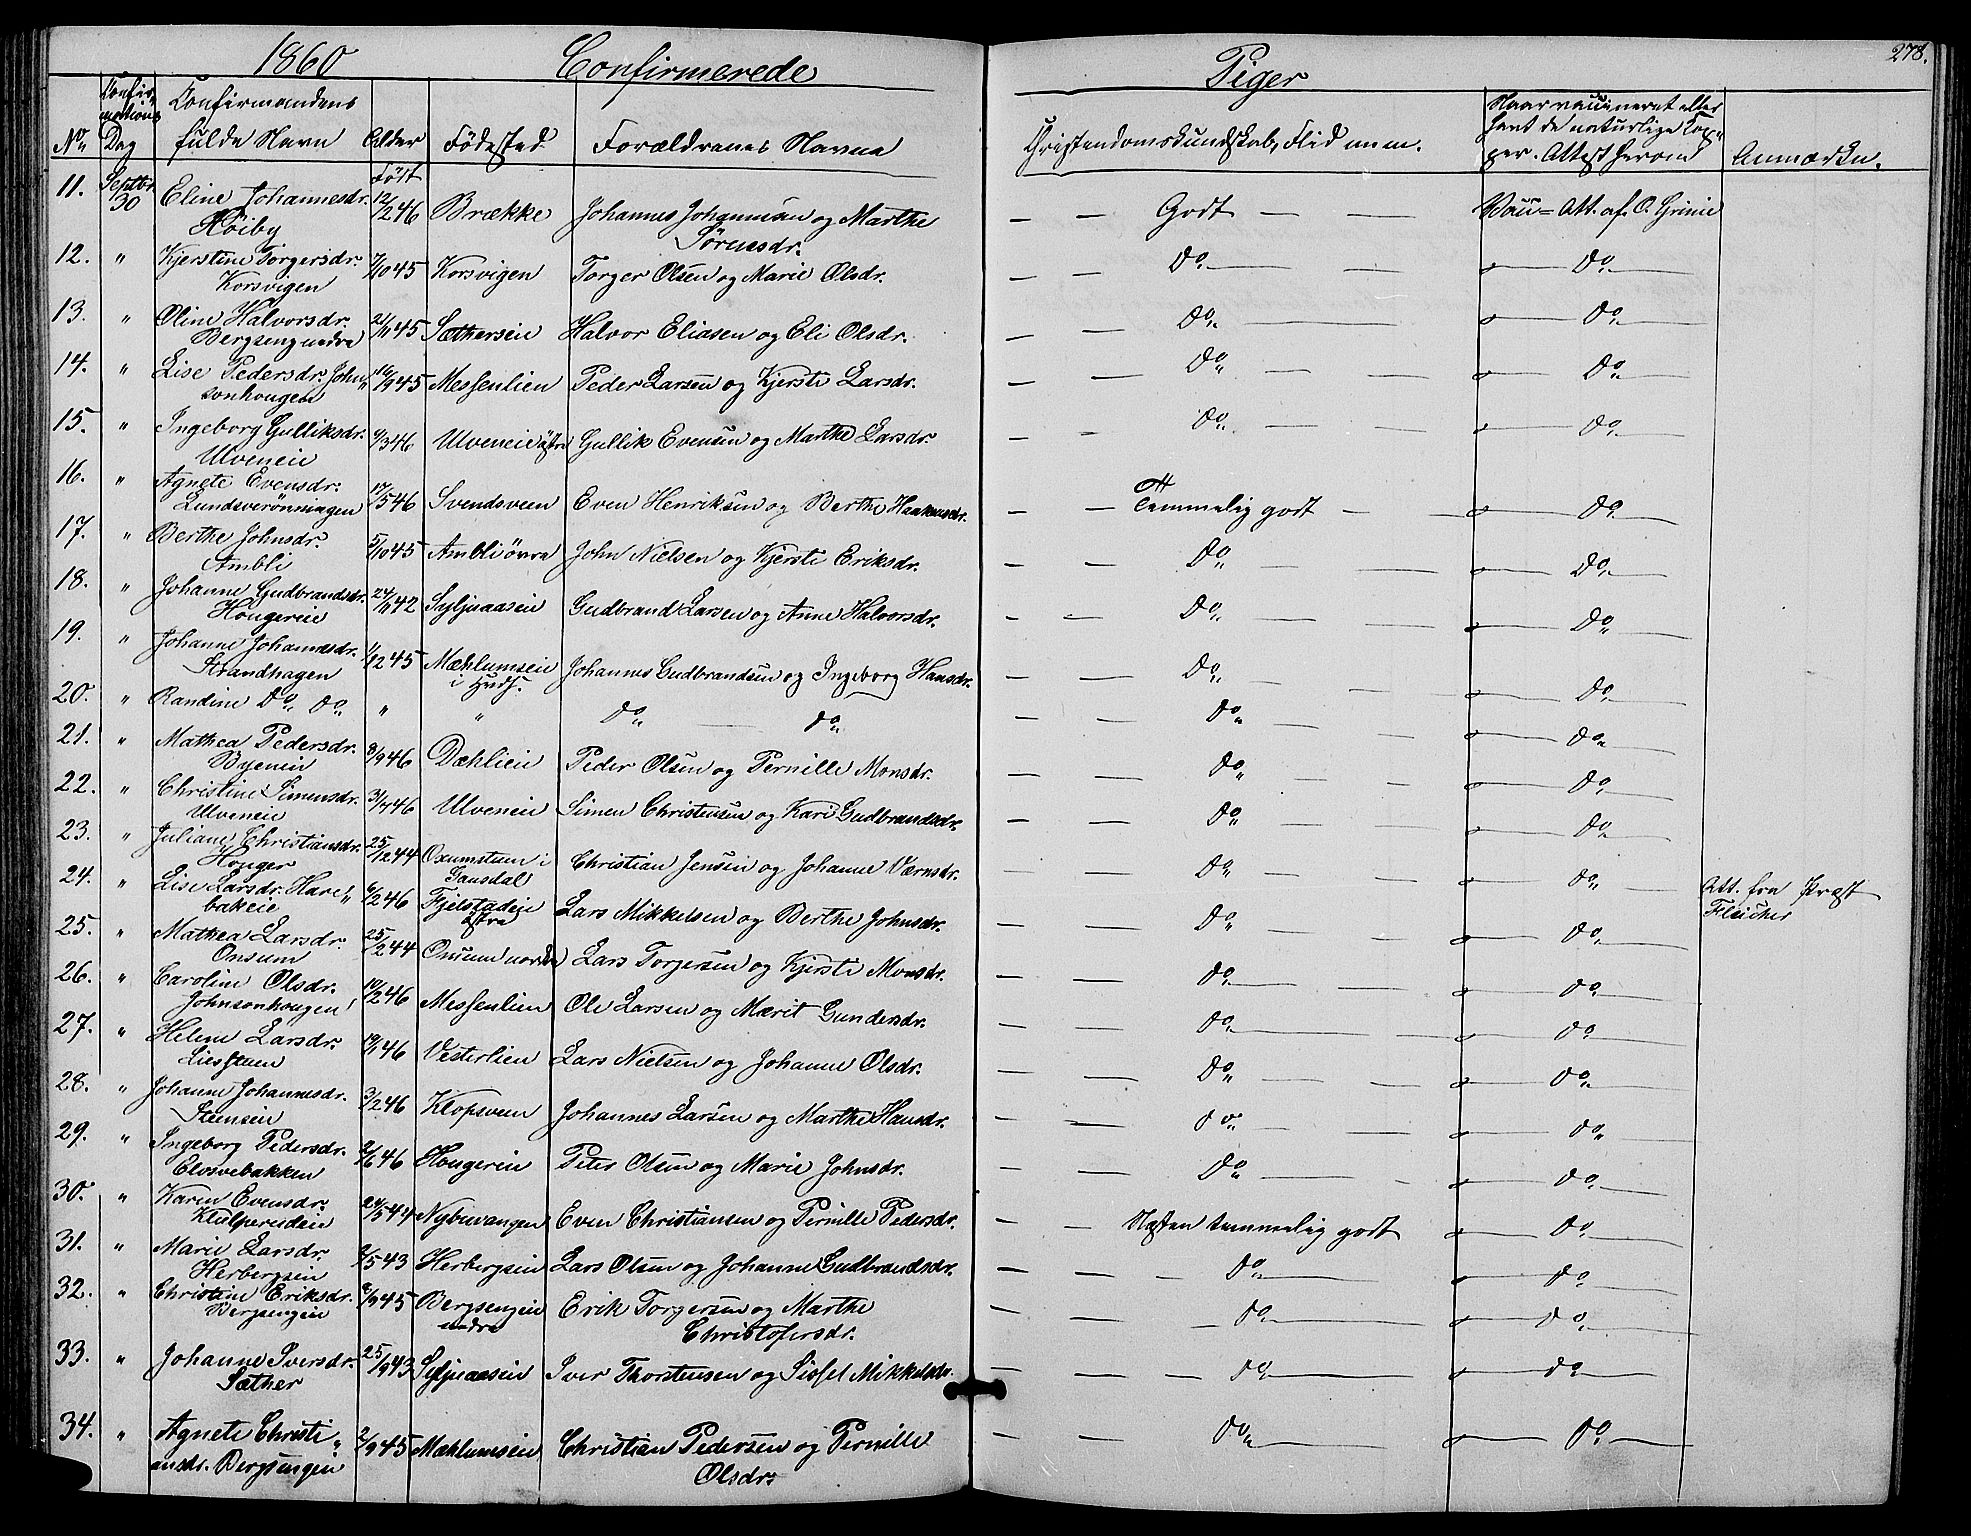 1860 Confirmerede Piger 278.
No. Confirmations Dag Confirmandens fulde Navn Alder Födested Forældrenes Navne Christendomskundskab, Flid m.m. Naar vaccineret eller havt de naturlige Kopper. Attest herom Anmærkn.
11. Septbr. 30 Eline Johannesdr. født 12/2 46 Brække Johannes Johannesen og Marthe — — Godt — — Vacc= Att. af O. Grimie
Höiby Sörensdr.
12. " Kjerstine Torgersdr. 7/10 45 Korsvigen Torger Olsen og Marie Olsdr. — — Do — — Do
Korsvigen
13. " Oline Halvorsdr. 21/11 45 Sætherseie Halvor Eliasen og Eli Olsdr. — Do — — Do
Bergseng nedre
14. " Lise Pedersdr. John„ 16/9 45 Messenlien Peder Larsen og Kjersti Larsdr. — — Do — — Do
sonhougen
15. " Ingeborg Gulliksdr. 9/3 46 Ulveneie östre Gullik Evensen og Marthe Larsdr. — — Do — — Do
Ulveneie
16. " Agnete Evensdr. 17/5 46 Svendsveen Even Henriksen og Berthe Haakensdr. — — Temmelig godt — — Do
Lundsverönningen
17. " Berthe Johnsdr. 5/10 45 Ambli övre John Nielsen og Kjersti Eriksdr. — — Do — — Do
Ambli
18. " Johanne Gudbrandsdr. 24/11 42 Syljuaaseie Gudbrand Larsen og Anne Halvorsdr. — — Do — — Do
Hougereie
19. " Johanne Johannesdr. 1/12 45 Mæhlumseie Johannes Gudbrandsen og Ingeborg Hansdr. — — Do — — Do
Strandhagen i
20. " Randine Do Do " " Do — Do — — Do — — Do
21. " Mathea Pedersdr. 8/9 46 Dæhlieie Peder Olsen og Pernille Monsdr. — — Do — — Do
Byeneie
22. " Christine Simensdr. 31/7 46 Ulveneie Simen Christensen og Kari Gudbrandsdr. — — Do — — Do
Ulveneie
23. " Juliane Christiansdr. 25/12 44 Oxumsteen i Christian Jensen og Johanne Værnsdr. — — Do — — Do
Houger Gausdal
24. " Lise Larsdr. Hare„ 6/2 46 Fjelstadeie Lars Mikkelsen og Berthe Johnsdr. — — Do — — Do Att. fra Præst
bakeie östre Fleischer
25. " Mathea Larsdr. 25/2 44 Onsum nordre Lars Torgersen og Kjersti Monsdr. — — Do — — Do
Onsum
26. " Caroline Olsdr. 10/2 46 Messenlien Ole Larsen og Mærit Gundersdr. — — Do — — Do
Johnsonhougen
27. " Helene Larsdr. 19/1 46 Vesterlien Lars Nielsen og Johanne Olsdr. — — Do — — Do
28. " Johanne Johannesdr. 3/2 46 Klopsveen Johannes Larsen og Marthe Hansdr. — — Do — — Do
Steenseie
29. " Ingeborg Pedersdr. 2/6 46 Hougereie Peter Olsen og Marie Johnsdr. — — Do — — Do
Elvsvebakken
30. " Karen Evensdr. 24/5 44 Nybuvangen Even Christiansen og Pernille Pedersdr. — — Næsten temmelig godt — Do
31. " Marie Larsdr. 2/5 43 Herbergseie Lars Olsen og Johanne Gudbrandsdr. — — — Do — Do
Herbergseie
32. " Christine Eriksdr. 6/9 45 Bergsengeie Erik Torgersen og Marthe — — Do — Do
Bergsengeie nedre Christofersdr.
33. " Johanne Iversdr. 25/9 43 Syljuaaseie Iver Thorstensen og Sissel Mikkelsdr. — — — Do — Do
Sæther
34. " Agnete Christi„ 2/9 45 Mæhlumseie Christian Pedersen og Pernille — — — Do — Do
ansdr. Bergsengen Olsdr.